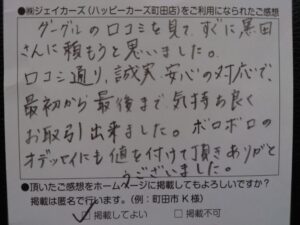 ●㈱ジェイカーズ（ハッピーカーズ町田店）をご利用になられたご感想
グーグルの口コミを見て、すぐに黒田
さんに頼もうと思いました。
口コミ通り、誠実、安心の対応で、
最初から最後まで気持ち良く
お取引出来ました。ボロボロの
オデッセイにも値を付けて頂きありがと
うございました。
●頂いたご感想をホームページに掲載してもよろしいですか？
掲載は匿名で行います。（例：町田市K様）
□掲載してよい　□掲載不可